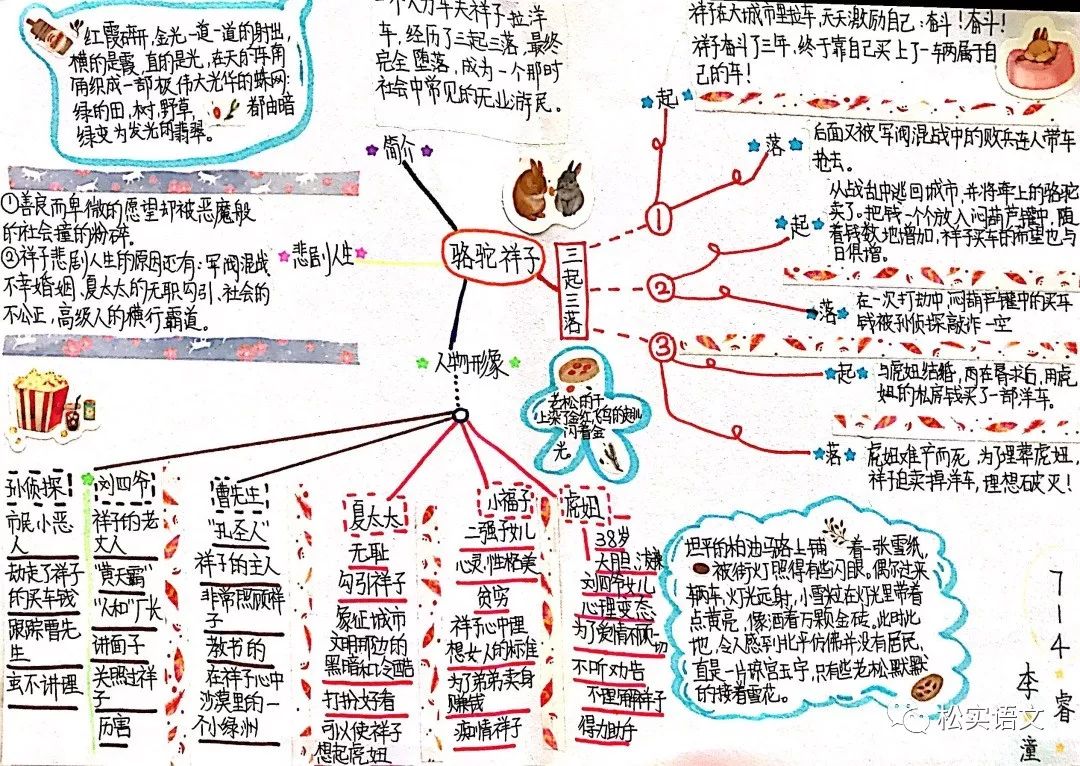 红霞碎开,金光一道一道的射出,
横的是霞,直的是光,在天的东角
织成一部极伟大光华的蛛网:
绿的田,树,野草,都由暗
绿变为发光的翡翠。
一个人力车夫祥子拉洋
车,经历了三起三落,最终
完全堕落,成为一个那时
社会中常见的无业游民。
简介
祥子在大城市里拉车,天天激励自己:奋斗!奋斗!
祥子奋斗了三年,终于靠自己买上了一车两属于自
己的车!
起
落
后面又被军阀混战中的败兵连人带车
抢去。
①善良而卑微的愿望却被恶魔般
的社会撞的粉碎。
②祥子悲剧人生的原因还有:军阀混战
不幸婚姻、夏太太的无职勾引、社会的
不公正,高级人的横行霸道。
悲剧人生
骆驼祥子
三起三落
①
②
③
起
从战乱中逃回城市,并将牵上的骆驼
卖了。把钱一个个放入闷葫芦罐中,随
着钱数地增加,祥子买车的希望也与
日俱增。
落
在一次打劫中闷葫芦罐中的买车
钱被孙侦探敲诈一空
起
与虎妞结婚,再在寻求自,用虎
妞的私房钱买了一部洋车。
落
虎妞难产而死,为了埋葬虎妞,
祥子迫卖掉洋车,理想破灭!
人物形象
老松用干
上染了金红,飞鸟的翅儿
闪着金
光
孙侦探
市民小恶
人
劫走了祥子
的买车钱
跟踪曹先
生
蛮不讲理
刘四爷
祥子的老
丈人
"黄天霸"
"人和"厂长
讲面子
关照过祥
子
厉害
曹先生
"孔圣人"
祥子的主人
非常照顾祥
子
教书的
在祥子心中
沙漠里的一
个小绿洲
夏太太
无耻
勾引祥子
象征城市
文明那边的
黑暗和冷酷
打扮好看
可以使祥子
想起虎妞
小福子
二强子女儿
心灵,性格美
贫穷
祥子心中理
想女人的标准
为了弟弟卖身
赚钱
痴情祥子
虎妞
38岁
大胆,泼辣
刘四爷女儿
心理变态
为了爱情不顾一切
不听劝告
不理解祥子
得力助手
坦平的柏油马路上铺着一张雪纸,
被街灯照得有些闪眼。偶尔过来
辆车,灯光远射,小雪粒在灯光里带着
点黄亮,像洒着万颗金砖。此时此
地,令人感到北平仿佛并没有居民,
直是一片琼宫玉宇,只有些老松默默
的接着雪花。
714
李睿潼
松实语文